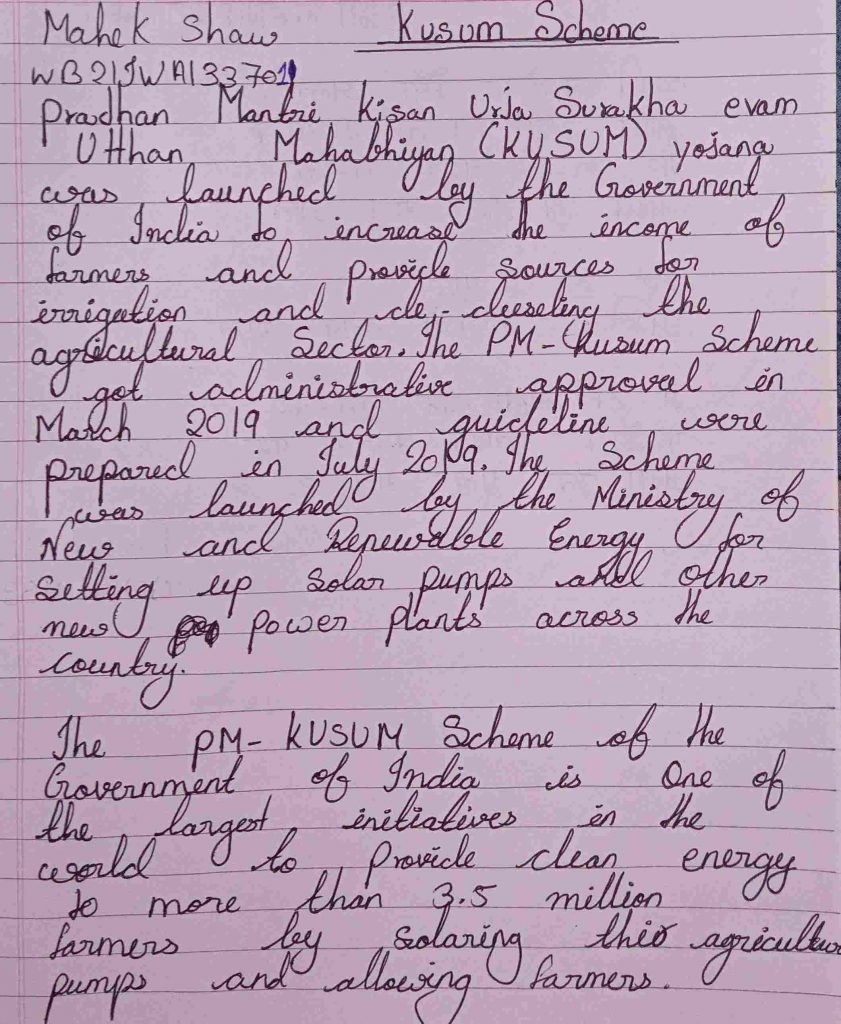 Mahek Shaw Kusum Scheme
WB21SWA1337011
Pradhan Mantri Kisan Urja Surakha evam
Utthan Mahabhiyan (KUSUM) yojana
was launched by the Government
of India to increase the income of
farmers and provide sources for
irrigation and de-dieseling the
agricultural Sector. The PM-Kusum Scheme
got administrative approval in
March 2019 and guideline were
prepared in July 2019. The Scheme
was launched by the Ministry of
New and Renewable Energy for
Setting up solar pumps and other
new power plants across the
country.
The PM-KUSUM Scheme of the
Government of India is One of
the largest initiatives in the
world to provide clean energy
to more than 3.5 million
farmers by solaring their agricultur
pumps and allowing farmers.